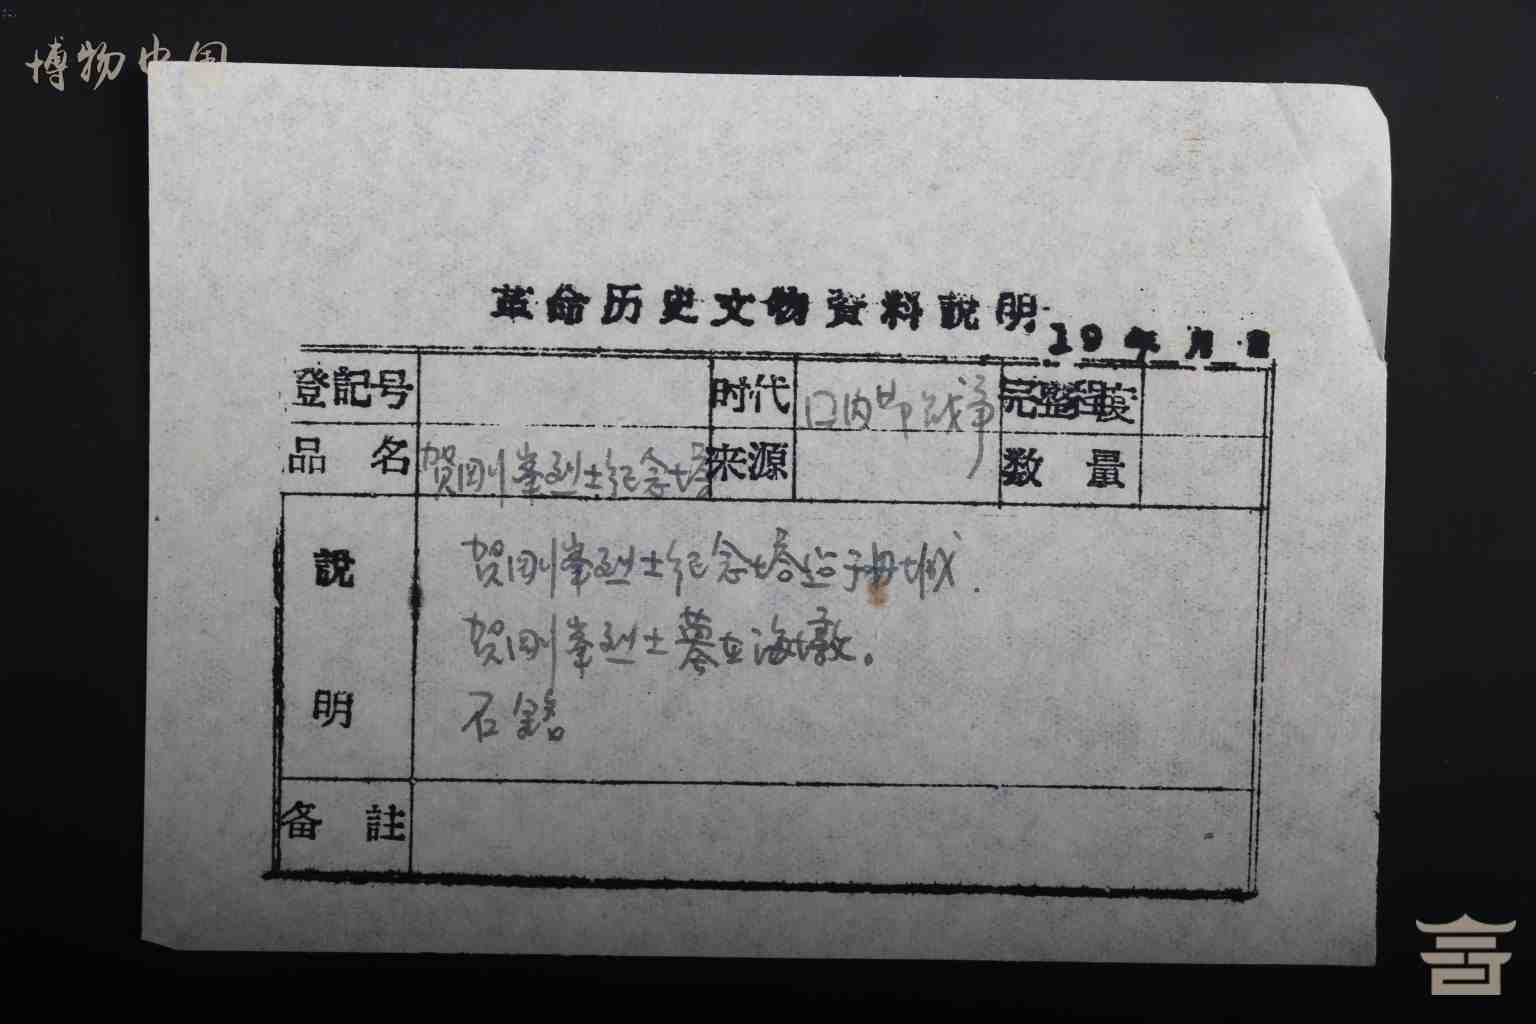 博物中国
革命历史文物資料説明
19 年 月 日
登記号 时代 口内革战争 完整程度
品名 贺刚峯烈士纪念塔 来源 数量
説明
贺刚峯烈士纪念塔竖于海城.
贺刚峯烈士墓在海墩。
石
备註